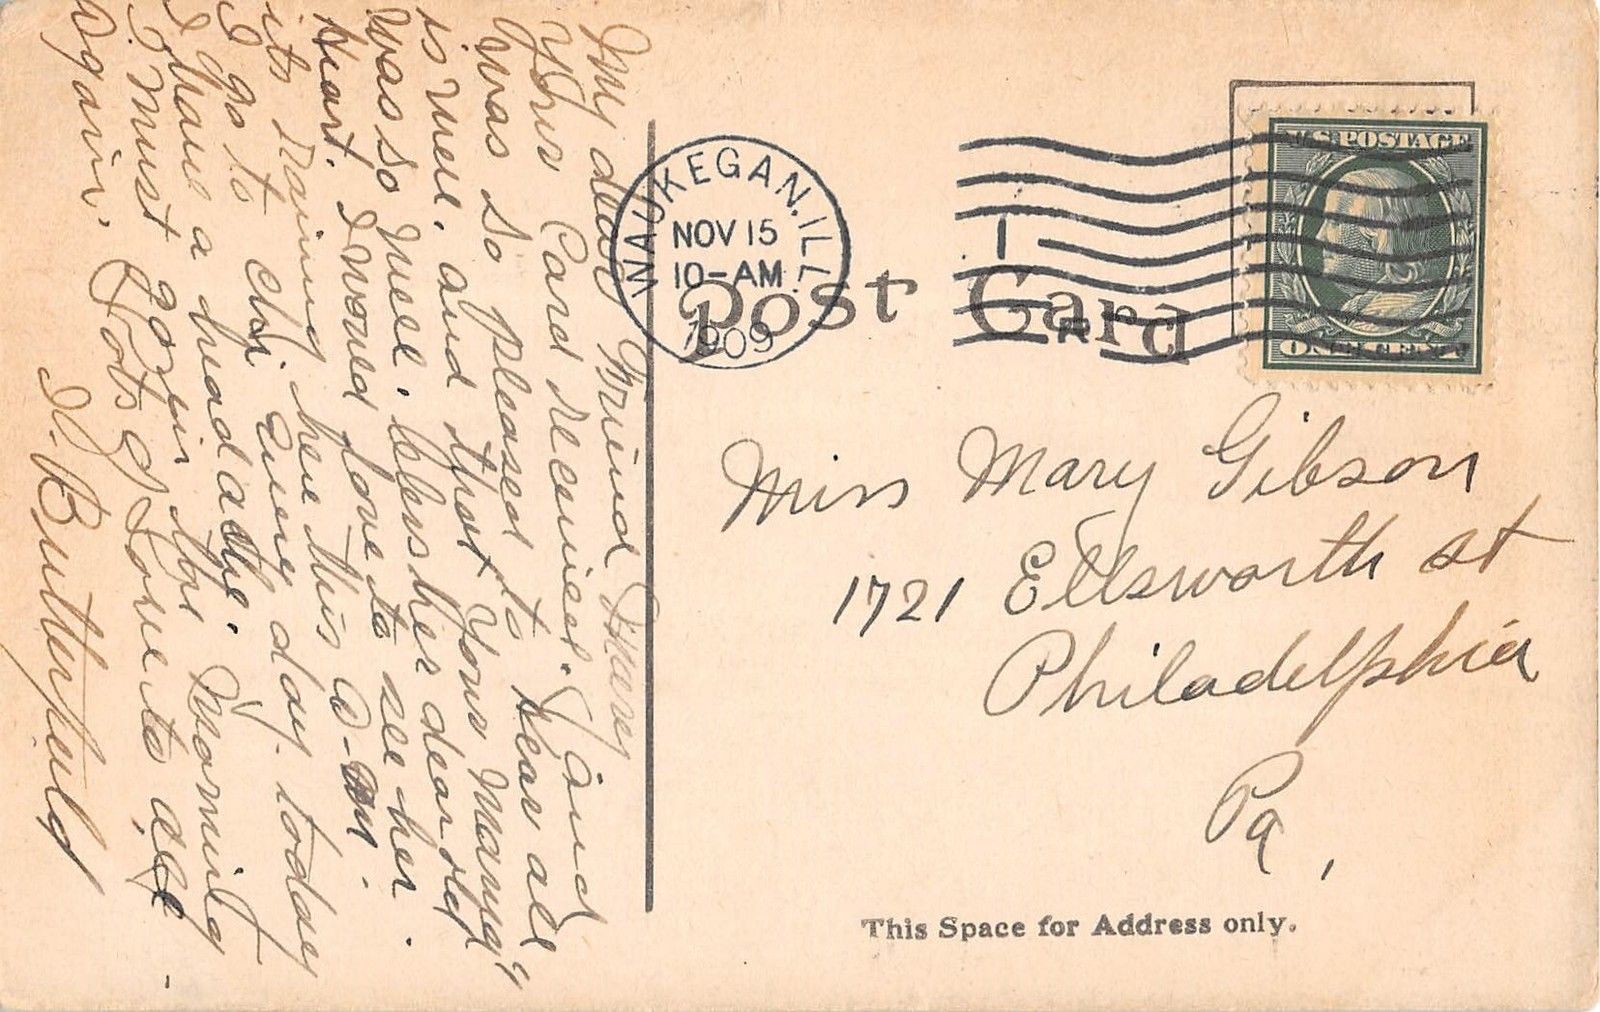 My dear Friend Mary
Your Card received. and
was so pleased to hear all
is well. and that your Mama
was so well. bless her dear old
Heart. I would love to see her.
its Raining here this A-M.
I go to Chi. every day. today
I have a headache. Morning
I Must go in the
again. Lots of Love to all
N. Butterfield
WAUKEGAN, ILL.
NOV 15
10-AM
1909
1
Post Card
U.S. POSTAGE
ONE CENT
Miss Mary Gibson
1721 Ellsworth st
Philadelphia
Pa,
This Space for Address only.